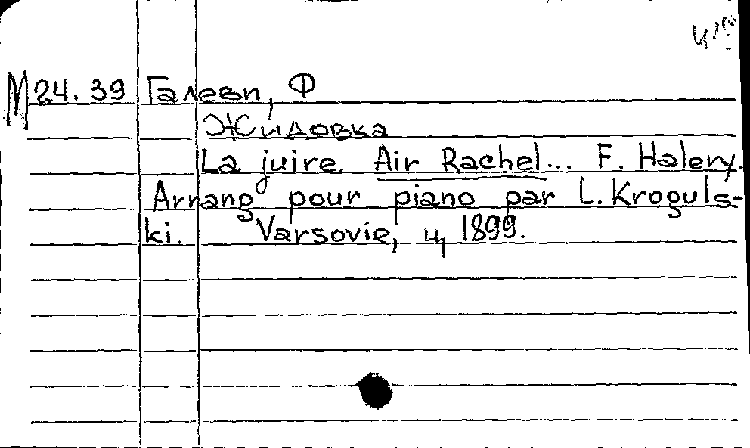 M24.39 Галеви, Ф
Жидовка
La juire. Air Rachel... F. Halery.
Arrang pour piano par L. Kroguls-
ki. Varsovie, ц, 1899.